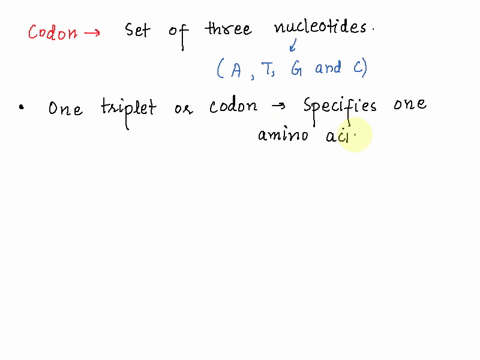 Codon → Set of three nucleotides.
(A, T, G and C)
• One triplet or codon → Specifies one
amino aci